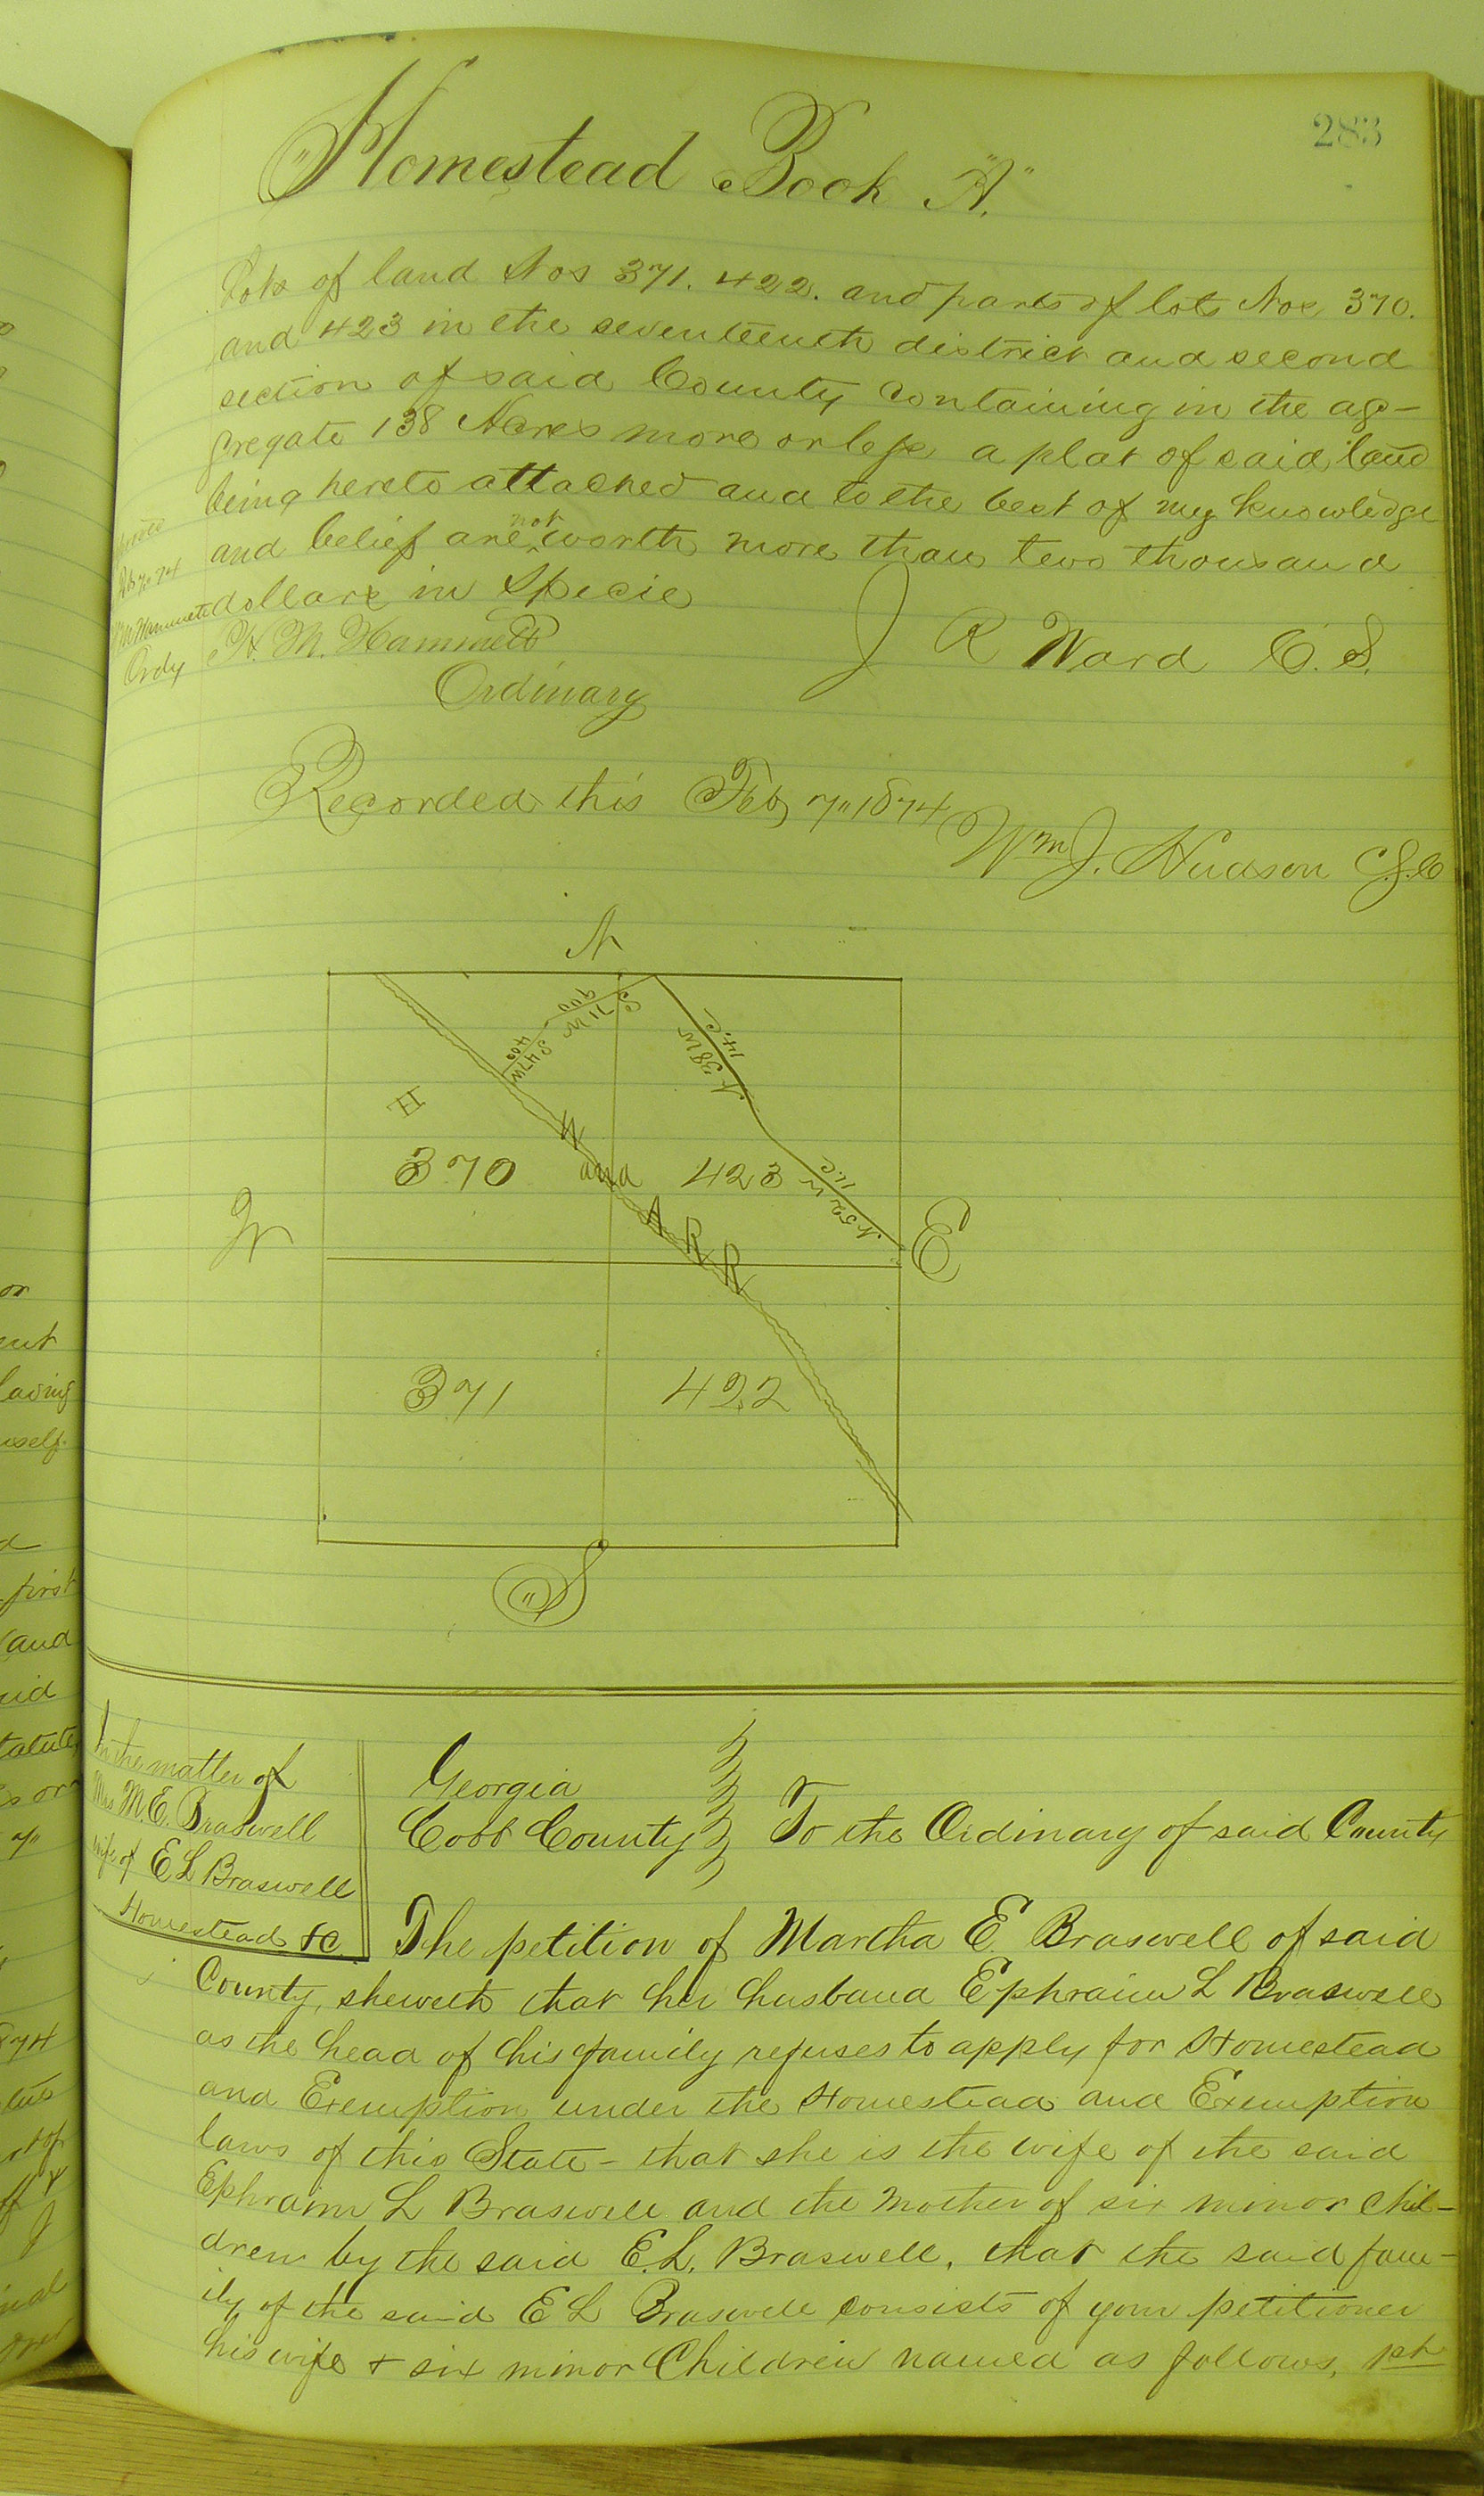 283
"Homestead Book "A."
Lots of land Nos 371. 422. and parts of lots Nos 370.
and 423 in the seventeenth district and second
section of said County containing in the ag-
gregate 138 Acres more or less a plat of said land
being hereto attached and to the best of my knowledge
and belief are not worth more than two thousand
dollars in Specie
J R Ward C. S.
H. M. Hammett
Ordinary
Feb 7 74
Hammett
Ordy
Recorded this Feb 7" 1874
Wm J. Hudson C.S.C
N
S 71 W
900
S 47 W
400
N 38 W
14. C
N 52 W
11. C
H
370
W and A R R
423
W
E
371
422
"S
In the matter of
Mrs M.E. Braswell
wife of E L Braswell
Homestead &c
Georgia
Cobb County To the Ordinary of said County
The petition of Martha E Braswell of said
County, sheweth that her husband Ephraim L Braswell
as the head of his family refuses to apply for Homestead
and Exemption under the Homestead and Exemption
laws of this State - that she is the wife of the said
Ephraim L Braswell and the Mother of six minor Chil-
dren by the said E.L. Braswell, that the said fam-
ily of the said E L Braswell consists of your petitioner
his wife & six minor Children named as follows, 1st
or
ent
self.
first
and
tatute,
74